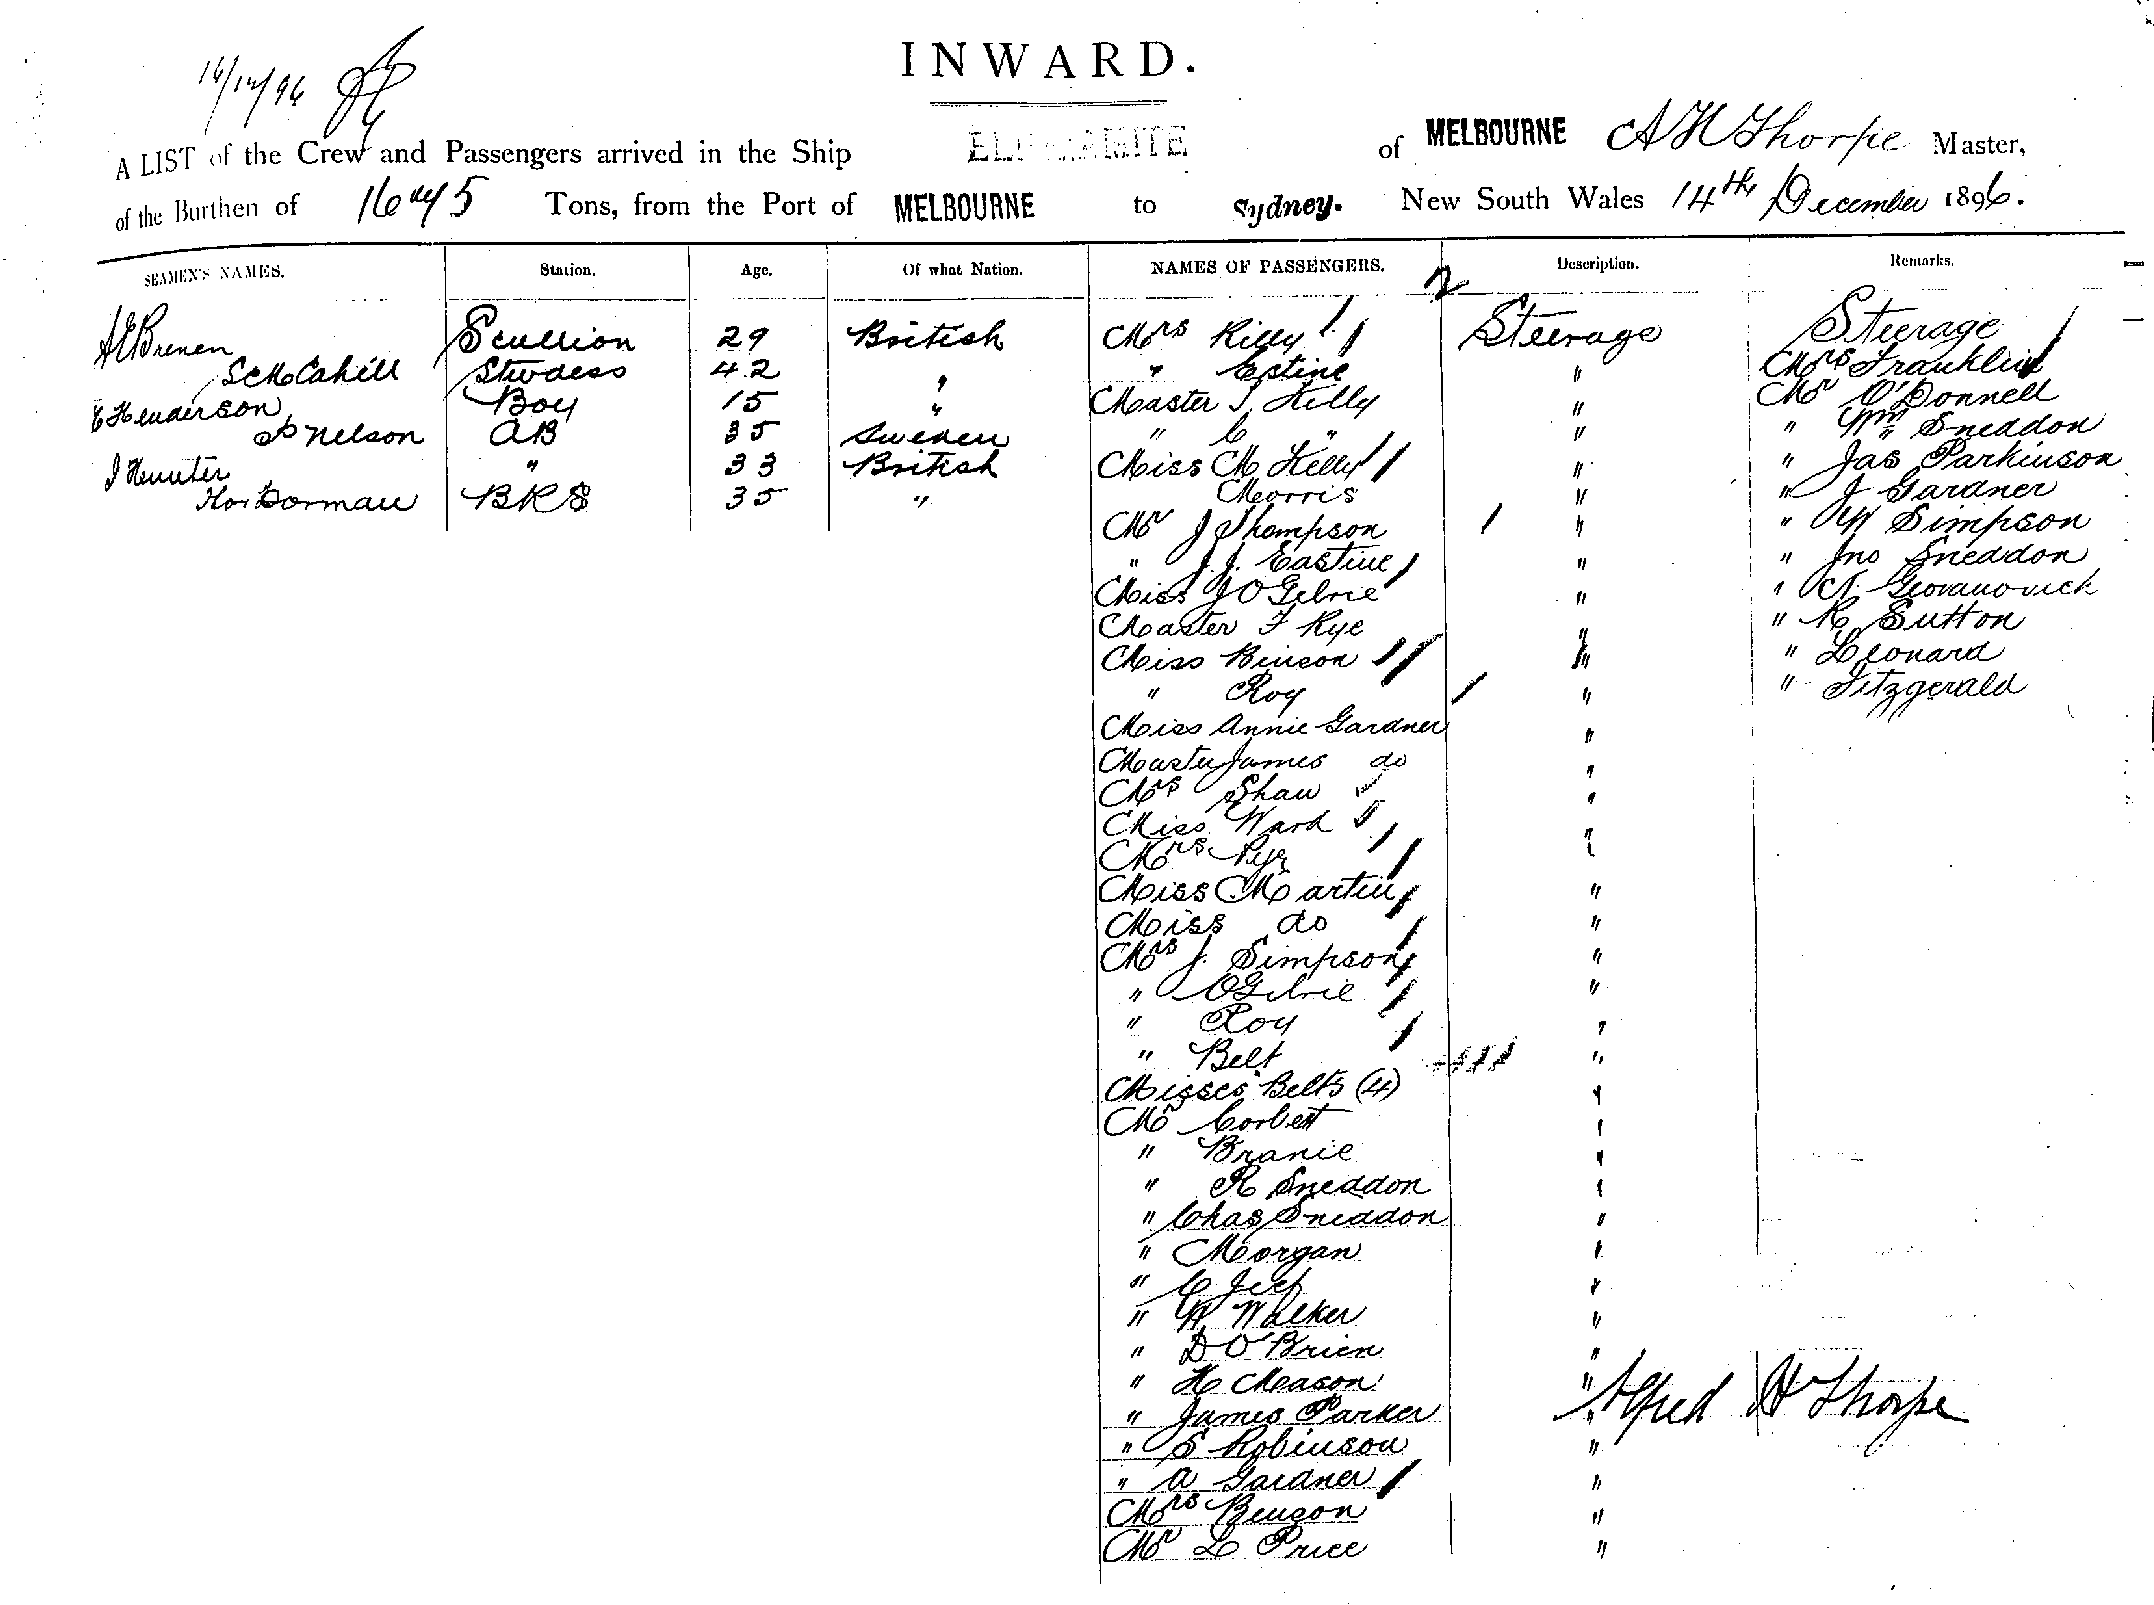 16/12/96
INWARD.
A LIST of the Crew and Passengers arrived in the Ship ELINGAMITE of MELBOURNE A H Thorpe Master,
of the Burthen of 1675 Tons, from the Port of MELBOURNE to Sydney. New South Wales 14th December 1896.
SEAMEN'S NAMES. Station. Age. Of what Nation. NAMES OF PASSENGERS. Description. Remarks.
Brenen Scullion 29 British
McCahill Stewdess 42 "
Henderson Boy 15 "
Nelson AB 35 Sweden
J Hunter " 33 British
Dorman BRS 35 "
Mrs Kelly Steerage
" Estine "
Master J Kelly "
" C " "
Miss M Kelly "
Morris "
Mr J Thompson "
" J.J. Eastine "
Miss J O Gilvie "
Master F Rye "
Miss Binson "
" Roy "
Miss Annie Gardner "
Master James do "
Mrs Shaw "
Miss Ward "
Mrs Rye "
Miss Martin "
Miss do "
Mrs J. Simpson "
" OGilvie "
" Roy "
" Belt "
Misses Belts (4) "
Mr Corbett "
" Branie "
" R Sneddon "
" Chas Sneddon "
" Morgan "
" C "
" W Walker "
" D O'Brien "
" H Mason "
" James Parker "
" S Robinson "
" A Gardner "
Mrs Benson "
Mr L Price "
Steerage
Mrs Franklin
Mr O'Donnell
" Wm Sneddon
" Jas Parkinson
" J Gardner
" W Simpson
" Jno Sneddon
" N. Geovanovich
" R Sutton
" Leonard
" Fitzgerald
Alfred H Thorpe